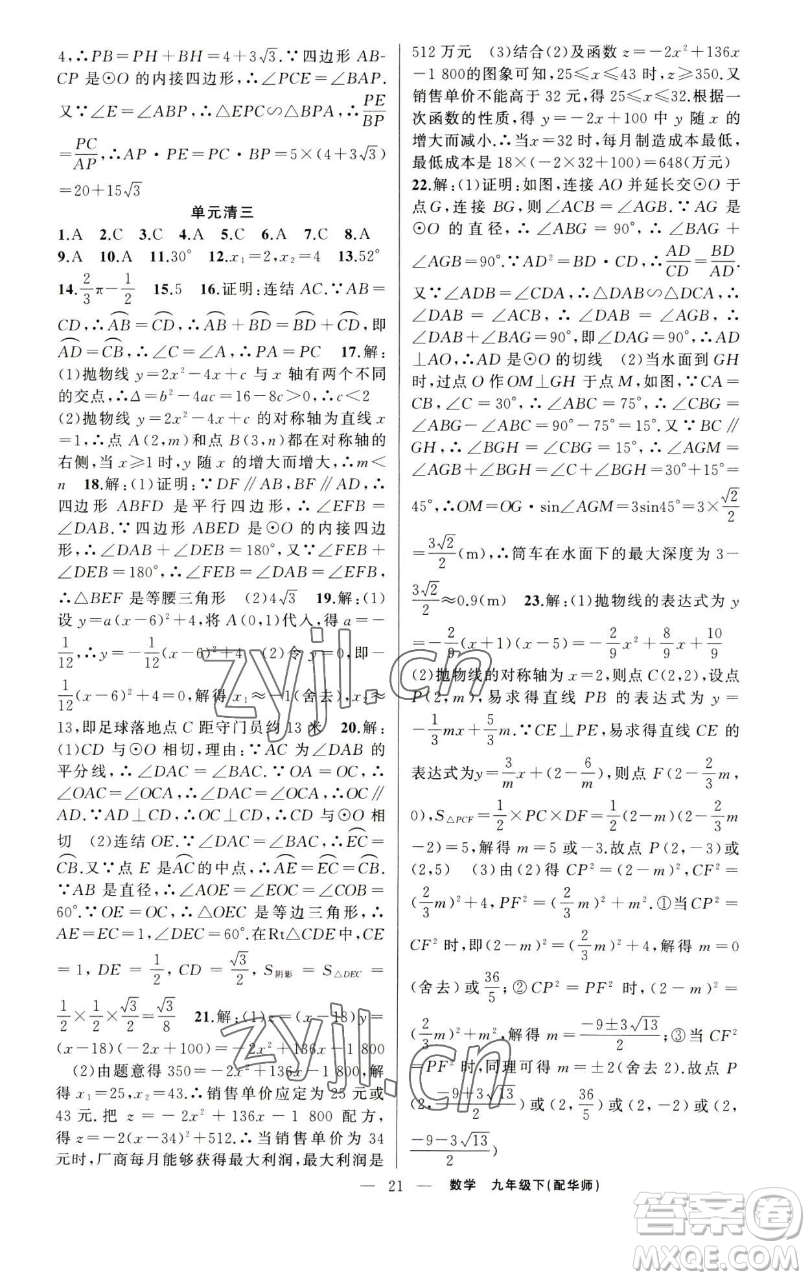 4,∴PB=PH+BH=4+3√3.∵四边形 AB-
CP 是⊙O 的内接四边形,∴∠PCE=∠BAP.
又∵∠E=∠ABP,∴△EPC∽△BPA,∴PE/BP
=PC/AP,∴AP·PE=PC·BP=5×(4+3√3)
=20+15√3
单元清三
1.A 2.C 3.C 4.A 5.C 6.A 7.C 8.A
9.A 10.A 11.30° 12.x₁=2,x₂=4 13.52°
14.2/3π-1/2 15.5 16.证明:连结 AC.∵AB=
CD,∴AB͡=CD͡,∴AB͡+BD͡=BD͡+CD͡,即
AD͡=CB͡,∴∠C=∠A,∴PA=PC 17.解:
(1)抛物线 y=2x²-4x+c 与 x 轴有两个不同
的交点,∴Δ=b²-4ac=16-8c>0,∴c<2
(2)抛物线 y=2x²-4x+c 的对称轴为直线 x
=1,∴点 A(2,m)和点 B(3,n)都在对称轴的
右侧,当 x≥1 时,y 随 x 的增大而增大,∴m<
n 18.解:(1)证明:∵DF∥AB,BF∥AD,∴
四边形 ABFD 是平行四边形,∴∠EFB=
∠DAB.∵四边形 ABED 是⊙O 的内接四边
形,∴∠DAB+∠DEB=180°,又∵∠FEB+
∠DEB=180°,∴∠FEB=∠DAB=∠EFB,
∴△BEF 是等腰三角形 (2)4√3 19.解:(1)
设 y=a(x-6)²+4,将 A(0,1)代入,得 a=-
1/12,∴y=-1/12(x-6)²+4 (2)令 y=0,即-
1/12(x-6)²+4=0,解得 x₁≈-1(舍去),x₂≈
13,即足球落地点 C 距守门员约 13 米 20.解:
(1)CD 与⊙O 相切,理由:∵AC 为∠DAB 的
平分线,∴∠DAC=∠BAC.∵OA=OC,∴
∠OAC=∠OCA,∴∠DAC=∠OCA,∴OC∥
AD.∵AD⊥CD,∴OC⊥CD,∴CD 与⊙O 相
切 (2)连结 OE.∵∠DAC=∠BAC,∴EC͡=
CB͡.又∵点 E 是AC͡的中点,∴AE͡=EC͡=CB͡.
∵AB 是直径,∴∠AOE=∠EOC=∠COB=
60°.∵OE=OC,∴△OEC 是等边三角形,∴
AE=EC=1,∠DEC=60°.在Rt△CDE中,CE
=1,DE=1/2,CD=√3/2,S阴影=S△DEC=
1/2×1/2×√3/2=√3/8 21.解:(1)z=(x-18)y=
(x-18)(-2x+100)=-2x²+136x-1 800
(2)由题意得 350=-2x²+136x-1 800,解
得 x₁=25,x₂=43.∴销售单价应定为 25 元或
43 元.把 z=-2x²+136x-1 800 配方,
得 z=-2(x-34)²+512.∴当销售单价为 34
元时,厂商每月能够获得最大利润,最大利润是
512 万元 (3)结合(2)及函数 z=-2x²+136x
-1 800 的图象可知,25≤x≤43 时,z≥350.又
销售单价不能高于 32 元,得 25≤x≤32.根据一
次函数的性质,得 y=-2x+100 中 y 随 x 的
增大而减小.∴当 x=32 时,每月制造成本最低,
最低成本是 18×(-2×32+100)=648(万元)
22.解:(1)证明:如图,连接 AO 并延长交⊙O 于
点G,连接 BG,则∠ACB=∠AGB.∵AG 是
⊙O 的直径,∴∠ABG=90°,∴∠BAG+
∠AGB=90°.∵AD²=BD·CD,∴AD/CD=BD/AD.
又∵∠ADB=∠CDA,∴△DAB∽△DCA,∴
∠DAB=∠ACB=∠AGB,∴∠DAB+
∠BAG=90°,即∠DAG=90°,∴AD
⊥AO,∴AD 是⊙O 的切线 (2)当水面到 GH
时,过点 O 作 OM⊥GH 于点 M,如图.∵CA=
CB,∠C=30°,∴∠ABC=75°,∴∠CBG=
∠ABG-∠ABC=90°-75°=15°.又∵BC∥
GH,∴∠BGH=∠CBG=15°,∴∠AGM=
∠AGB+∠BGH=∠ACB+∠BGH=30°+15°=
45°,∴OM=OG·sin∠AGM=3sin45°=3×√2/2
=3√2/2(m),∴筒车在水面下的最大深度为 3-
3√2/2≈0.9(m) 23.解:(1)抛物线的表达式为 y
=-2/9(x+1)(x-5)=-2/9x²+8/9x+10/9
(2)抛物线的对称轴为 x=2,则点 C(2,2),设点
P(2,m),易求得直线 PB 的表达式为 y=
-1/3mx+5/3m,∵CE⊥PE,易求得直线 CE 的
表达式为y=3/m x+(2-6/m),则点 F(2-2/3m,
0),S△PCF=1/2×PC×DF=1/2(2-m)(2/3m
-2)=5,解得 m=5 或-3.故点 P(2,-3)或
(2,5) (3)由(2)得 CP²=(2-m)²,CF²=
(2/3m)²+4,PF²=(2/3m)²+m².①当 CP²=
CF² 时,即(2-m)²=(2/3m)²+4,解得 m=0
(舍去)或36/5;②当 CP²=PF² 时,(2-m)²=
(2/3m)²+m²,解得 m=(-9±3√13)/2;③当 CF²
=PF² 时,同理可得 m=±2(舍去 2).故点 P
(2,(-9+3√13)/2)或(2,36/5)或(2,-2)或(2,
(-9-3√13)/2)
— 21 — 数学 九年级下(配华师)
zyjl.cn
zyjl.cn
答案圈
MXQE.COM